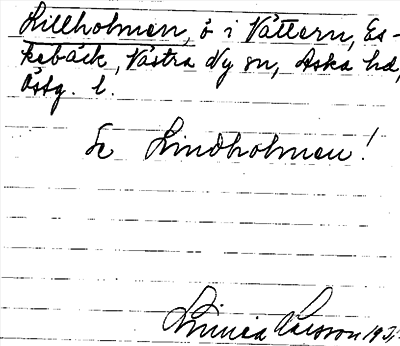 Lillholmen, ö i Vättern, Es-
kebäck, Västra Ny sn, Aska hd,
Östg. l.
Se Lindholmen!
Linnea Larsson 193